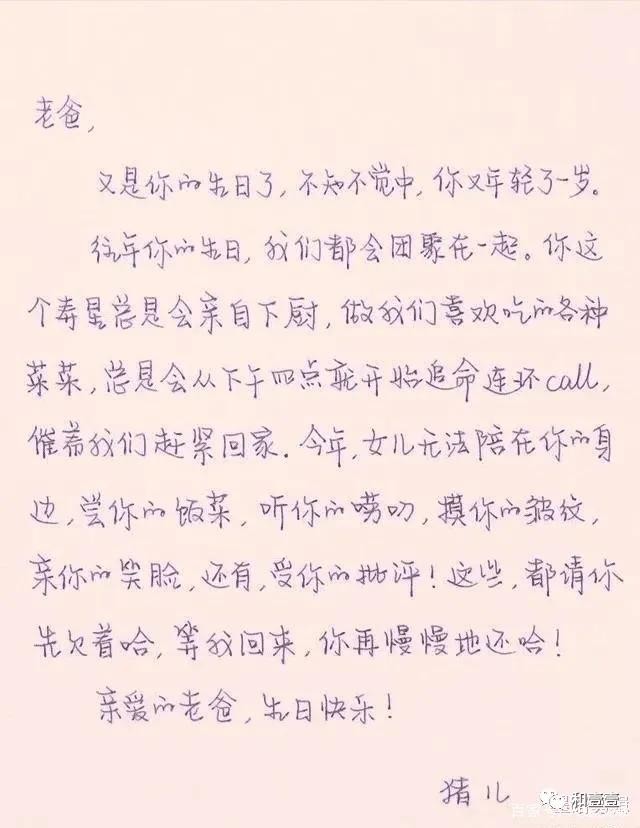 老爸，
又是你的生日了，不知不觉中，你又年轻了一岁。
往年你的生日，我们都会团聚在一起。你这
个寿星总是会亲自下厨，做我们喜欢吃的各种
菜菜，总是会从下午四点就开始追命连环call，
催着我们赶紧回家．今年，女儿无法陪在你的身
边，尝你的饭菜，听你的唠叨，摸你的皱纹，
亲你的笑脸，还有，受你的批评！这些，都请你
先欠着哈，等我回来，你再慢慢地还哈！
亲爱的老爸，生日快乐！
猪儿
和壹壹